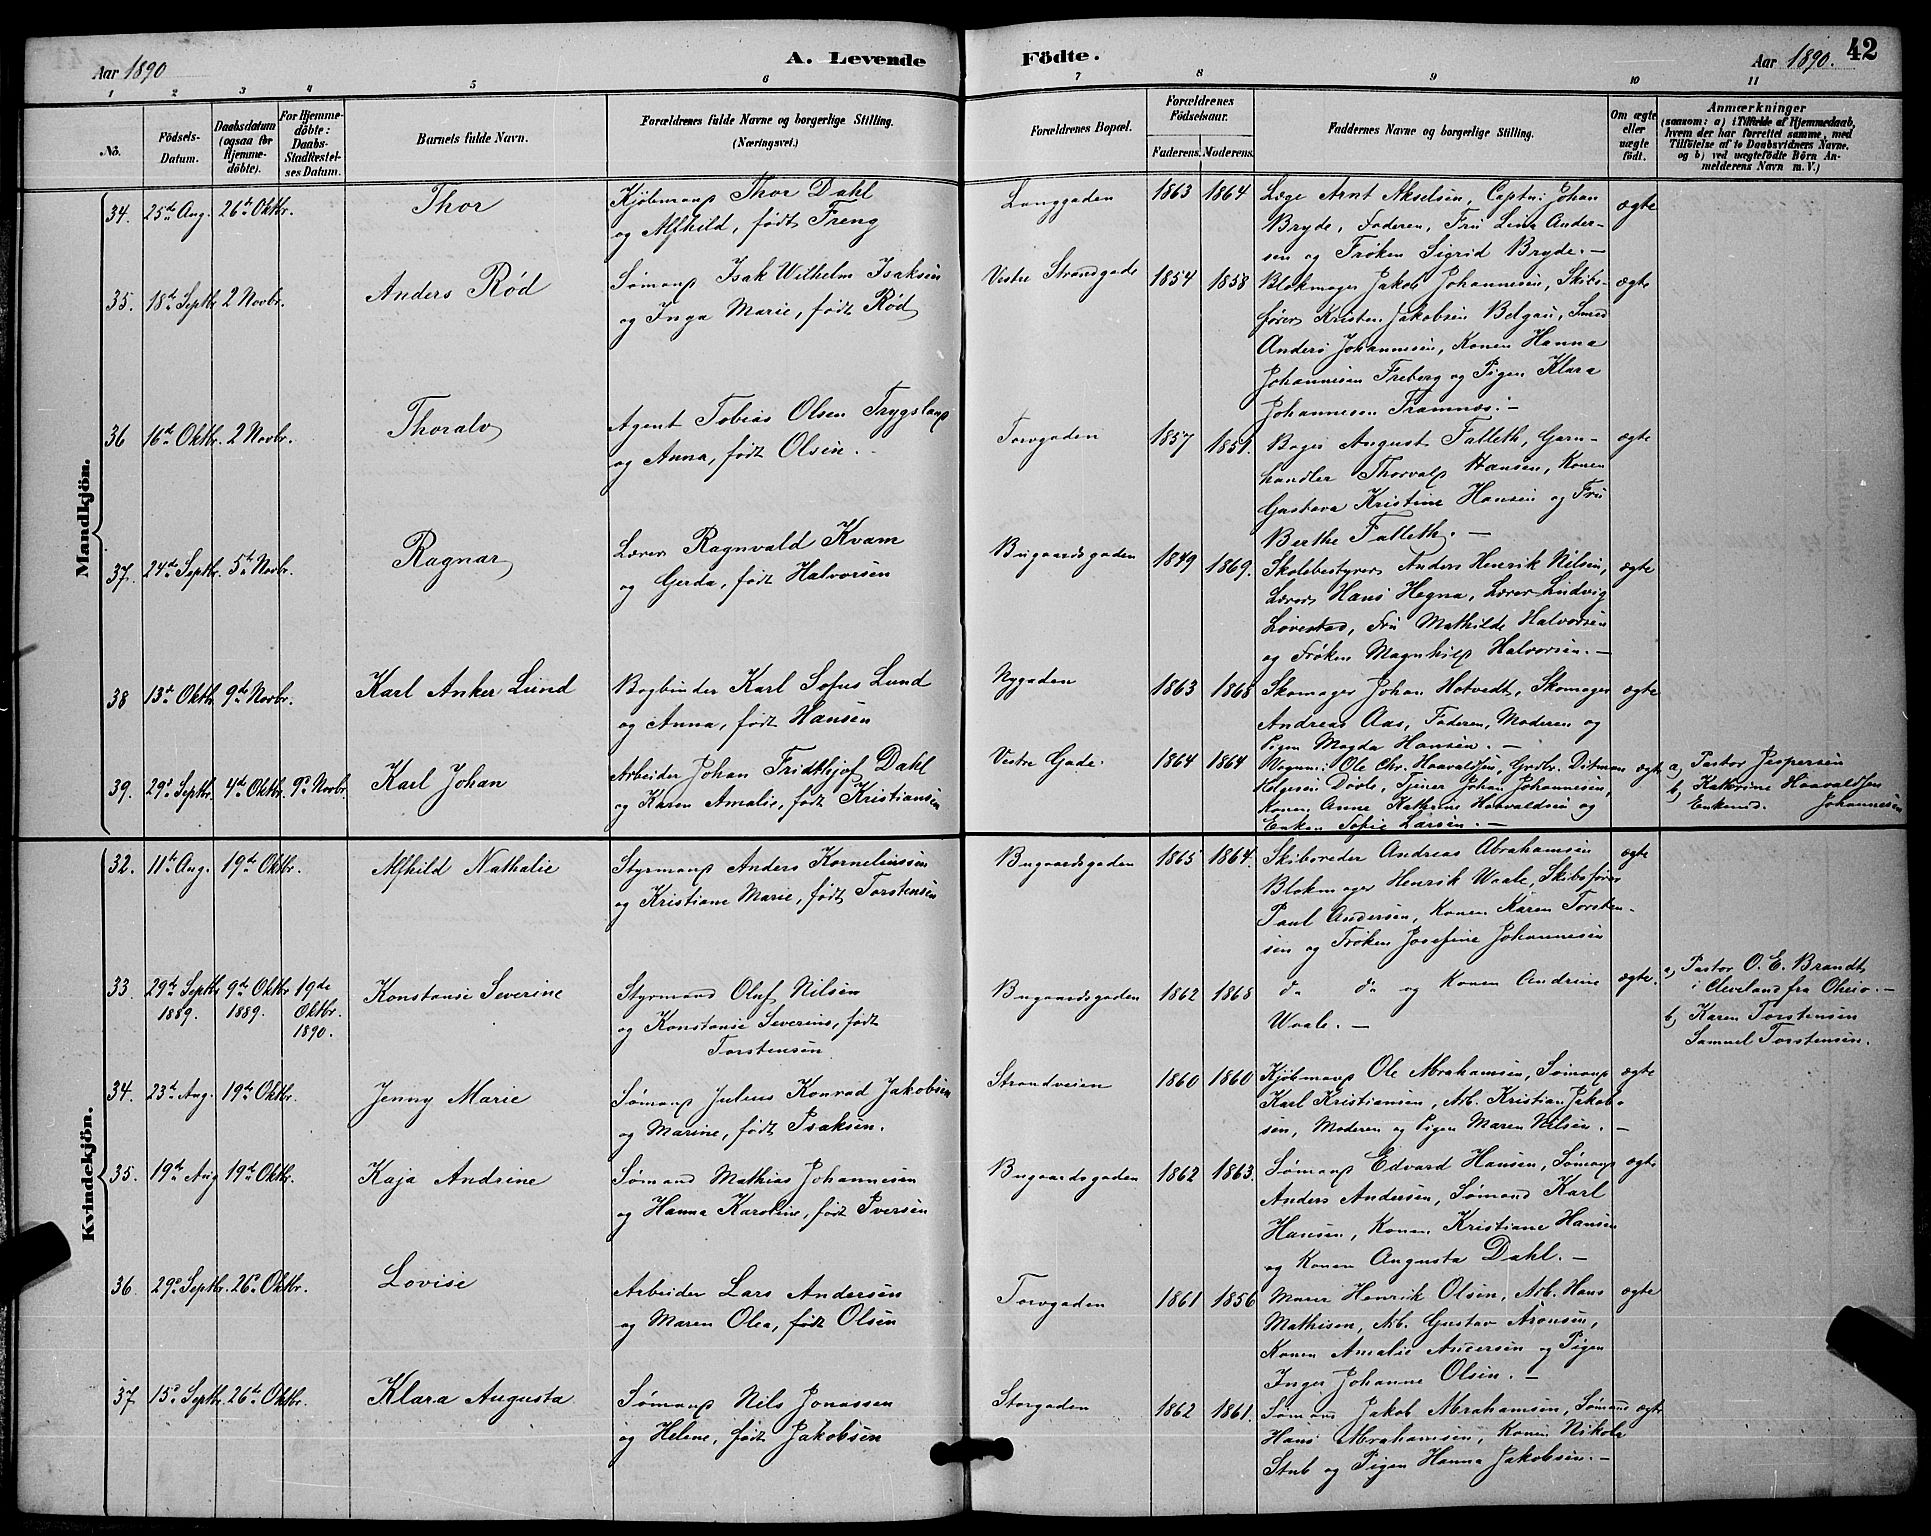 Aar 1890
A. Levende
Födte.
Aar 1890.
42
1 2 3 4 5 6 7 8 9 10 11
No.
Födsels-
Datum.
Daabsdatum
(ogsaa for
Hjemme-
döbte).
For Hjemme-
döbte:
Daabs-
Stadfæstel-
ses Datum.
Barnets fulde Navn.
Forældrenes fulde Navne og borgerlige Stilling.
(Næringsvei.)
Forældrenes Bopæl.
Forældrenes
Födselsaar.
Faderens. Moderens.
Faddernes Navne og borgerlige Stilling.
Om ægte
eller
uægte
födt.
Anmærkninger
(saasom: a) i Tilfælde af Hjemmedaab,
hvem der har forrettet samme, med
Tilföielse af to Daabsvidners Navne,
og b) ved uægtefödte Börn An-
melderens Navn m. V.)
Mandkjön.
34. 25de Aug. 26de Oktbr. Thor
Kjöbmand Thor Dahl
og Alfhild, født Freng
Langgaden 1863 1864
Læge Arnt Akselsen, Captn: Johan
Bryde, Faderen, Fru Lina Ander-
sen og Frøken Sigrid Bryde. —
ægte
35. 18de Septbr. 2 Novbr. Anders Rød
Sømand Isak Wilhelm Isaksen
og Inga Marie, født Rød
Vestre Strandgade 1854 1858
Blokmager Jakob Johannesen, Skibs-
fører Kristen Jakobsen Belgau, Smed
Anders Johannesen, Konen Hanna
Johannesen Freberg og Pigen Klara
Johannesen Framnæs. —
ægte
36 16de Oktbr. 2 Novbr. Thoralv
Agent Tobias Olsen Trygsland
og Anna, født Olsen.
Torvgaden 1857 1851.
Bager August Falleth, Garn-
handler Thorvald Hansen, Konen
Gustava Kristine Hansen og Fru
Berthe Falleth. —
ægte
37. 24de Septbr. 5te Novbr. Ragnar
Lærer Ragnvald Kvam
og Gerda, født Halvorsen
Bugaardsgaden 1849 1869.
Skolebestyrer Anders Henrik Nilsen,
Lærer Hans Hegna, Lærer Ludvig
Løvestad, Fru Mathilde Halvorsen
og Frøken Magnhild Halvorsen. —
ægte
38 13de Oktbr. 9de Novbr. Karl Anker Lund
Bogbinder Karl Sofus Lund
og Anna, født Hansen
Nygaden 1863 1868
Skomager Johan Hotvedt, Skomager
Andreas Aas, Faderen, Moderen og
Pigen Magda Hansen. —
ægte
39. 29de Septbr. 4de Oktbr. 9de Novbr. Karl Johan
Arbeider Johan Fridthjof Dahl
og Karen Amalie, født Kristiansen
Vestre Gade. 1864 1864
Vognm: Ole Chr. Haavaldsen, Grdbr. Ditman
Helgesen Døvle, Tjener Johan Johannesen,
Konen Anne Kathrine Haavaldsen og
Enken Sofie Larsen. —
ægte
a) Pastor Jespersen
b) Kathrine Haavaldsen
Enkemd. Johannesen
Kvindekjön.
32. 11te Aug. 19de Oktbr. Alfhild Nathalie
Styrmand Anders Korneliussen
og Kristiane Marie, født Torstensen
Bugaardsgaden 1865 1864.
Skibsreder Andreas Abrahamsen
Blokmager Henrik Waale, Skibsfører
Paul Andersen, Konen Karen Torsten-
sen og Frøken Josefine Johannesen
ægte
33. 29de Septbr 9de Oktbr 19de
1889. 1889. Oktbr.
1890.
Konstanse Severine
Styrmand Oluf Nilsen
og Konstanse Severine, født
Torstensen
Bugaardsgaden 1862 1868
do do og Konen Andrine
Waale. —
ægte.
a) Pastor O. E. Brandt
i Cleveland fra Oheio. —
b) Karen Torstensen
Samuel Torstensen.
34. 23de Aug. 19de Oktbr. Jenny Marie
Sømand Julius Konrad Jakobsen
og Marine, født Isaksen.
Strandveien 1860 1860
Kjöbmand Ole Abrahamsen, Sømand
Karl Kristiansen, Arb. Kristian Jakob-
sen, Moderen og Pigen Maren Nilsen. —
ægte
35. 19de Aug 19de Oktbr. Kaja Andrine
Sømand Mathias Johannesen
og Hanna Karoline, født Iversen
Bugaardsgaden 1862 1863.
Sømand Edvard Hansen, Sømand
Anders Andersen, Sømand Karl
Hansen, Konen Kristiane Hansen
og Konen Augusta Dahl. —
ægte
36 29de Septbr. 26de Oktbr. Lovise
Arbeider Lars Andersen
og Maren Olea, født Olsen
Torvgaden 1861 1856
Murer Henrik Olsen, Arb. Hans
Mathisen, Arb. Gustav Aronsen,
Konen Amalie Andersen og Pigen
Inger Johanne Olsen. —
ægte
37 15de Septbr. 26de Oktbr. Klara Augusta
Sømand Nils Jonassen
og Helene, født Jakobsen
Storgaden 1862 1861.
Sømand Jakob Abrahamsen, Sømand
Hans Abrahamsen, Konen Nikola
Stub og Pigen Hanna Jakobsen. —
ægte